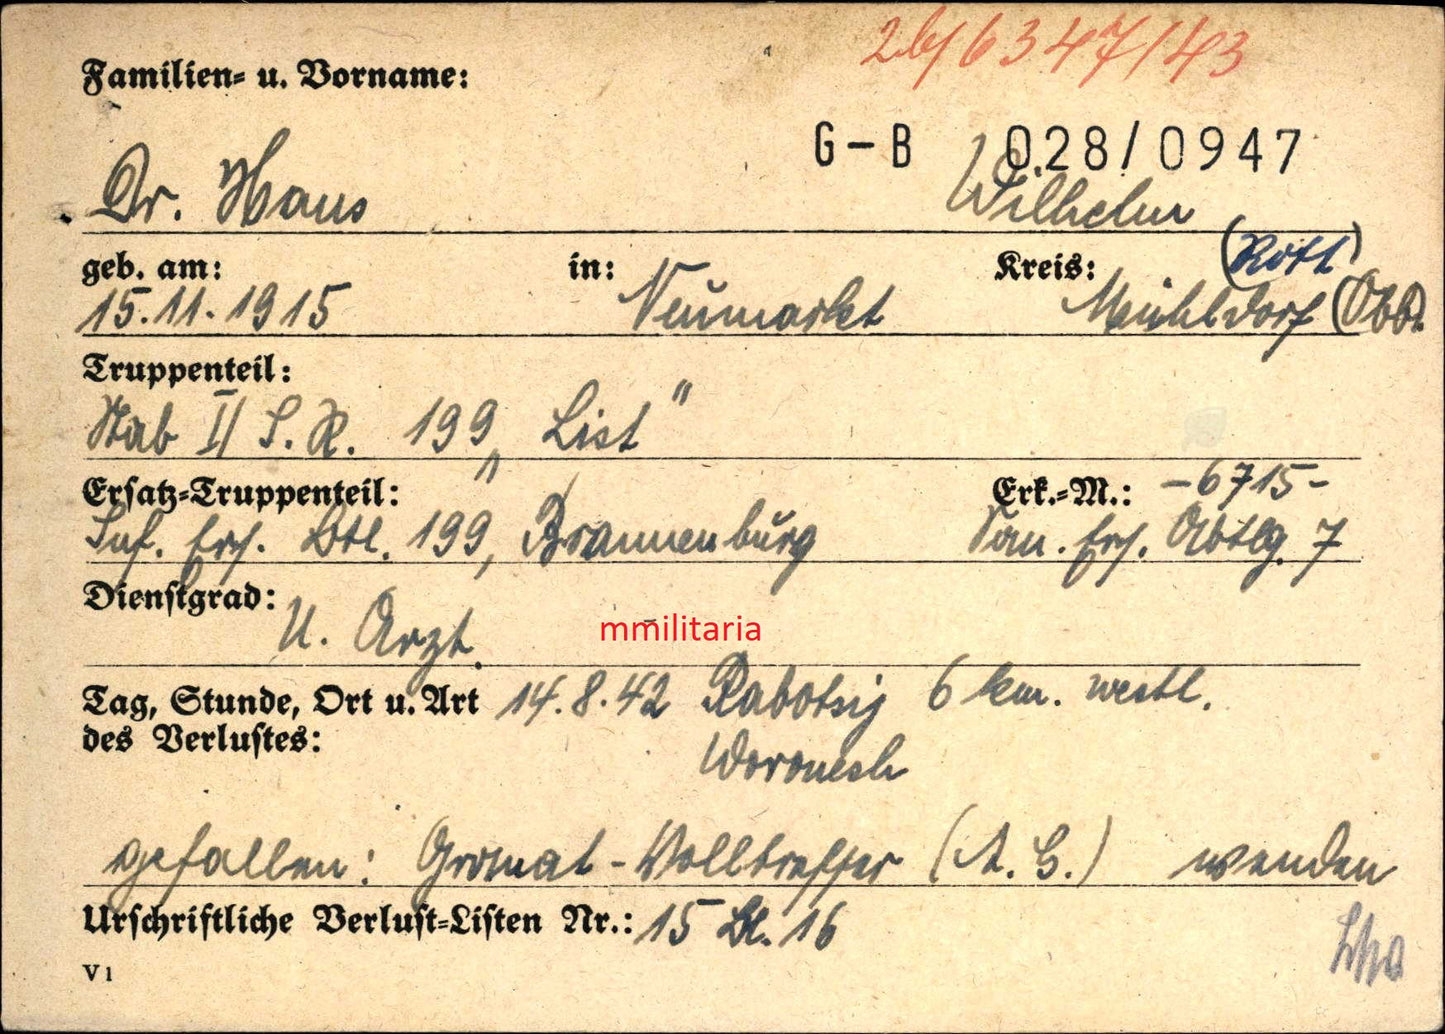 2b/6347/43
Familien- u. Vorname:
G-B 028/0947
Dr. Hans Wilhelm
geb. am: in: Kreis: (Rott)
15.11.1915 Neumarkt Mühldorf (Obb.
Truppenteil:
Stab II/ I.R. 199 „List"
Ersatz-Truppenteil: Erk.-M.: -6715-
Inf. Ers. Btl. 199, Brannenburg San. Ers. Abtlg. 7
Dienstgrad:
U. Arzt.
mmilitaria
Tag, Stunde, Ort u. Art 14.8.42 6 km. westl.
des Verlustes: Woronesh
gefallen: Granat-Volltreffer (A.G.) wenden
Urschriftliche Verlust-Listen Nr.: 15 Bl. 16
V 1